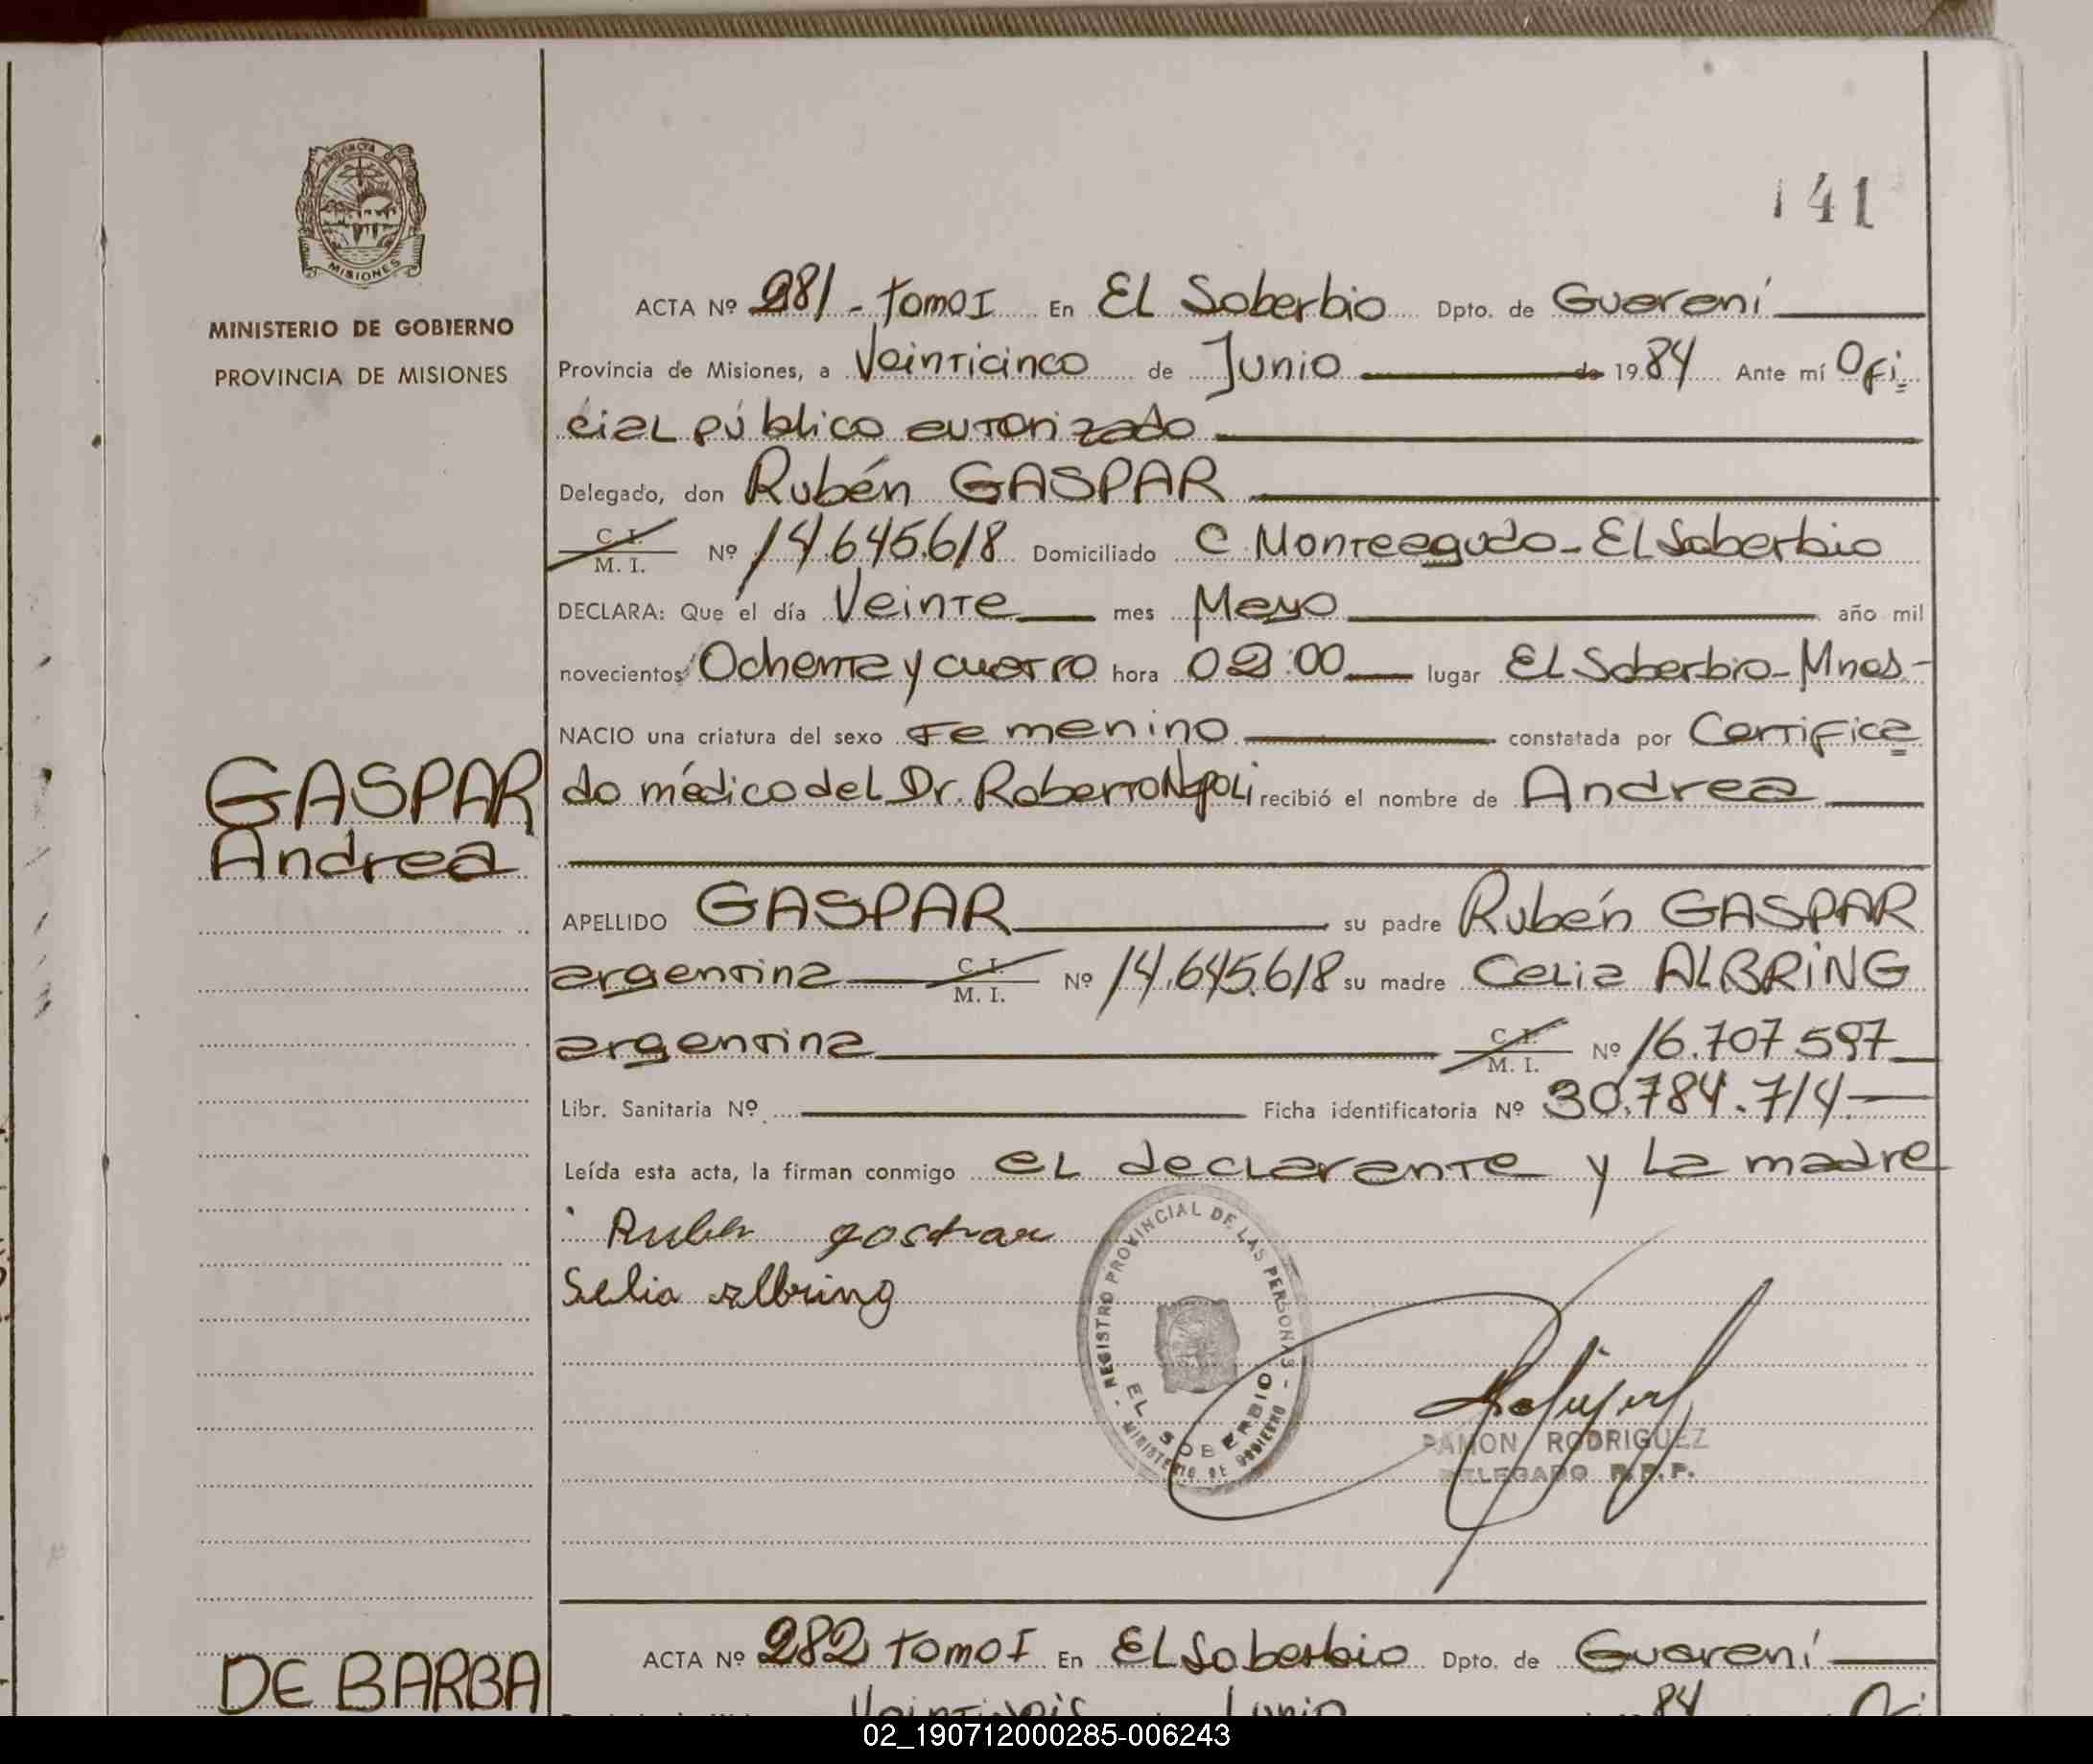 141
Provincia de
MISIONES
MINISTERIO DE GOBIERNO
PROVINCIA DE MISIONES
ACTA Nº 281 - tomo I En El Soberbio Dpto. de Guaraní
Provincia de Misiones, a Veinticinco de Junio de 1984 Ante mí Ofi=
cial público autorizado
Delegado, don Rubén GASPAR
C. I.
M. I. Nº 14.645.618 Domiciliado C. Monteagudo - El Soberbio
DECLARA: Que el día Veinte mes Mayo año mil
novecientos Ochenta y cuatro hora 02:00 lugar El Soberbio - Mnes-
NACIO una criatura del sexo Femenino constatada por Certifica=
do médico del Dr. Roberto Napoli recibió el nombre de Andrea
GASPAR
Andrea
APELLIDO GASPAR su padre Rubén GASPAR
argentina C. I.
M. I. Nº 14.645.618 su madre Celia ALBRING
argentina C. I.
M. I. Nº 16.707.597
Libr. Sanitaria Nº Ficha identificatoria Nº 30.784.714.-
Leída esta acta, la firman conmigo el declarante y la madre
Ruben gaspar
Selia albring
REGISTRO PROVINCIAL DE LAS PERSONAS - MINISTERIO DE GOBIERNO -
EL SOBERBIO
RAMON RODRIGUEZ
DELEGADO R.P.P.
ACTA Nº 282 tomo I En El Soberbio Dpto. de Guaraní
DE BARBA
Veintiseis Junio 84 Ofi
02_190712000285-006243